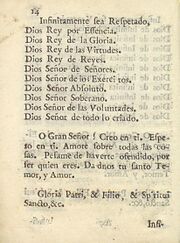 14
Infinitamente sea Respetado,
Dios Rey por Essencia.
Dios Rey de la Gloria.
Dios Rey de las Virtudes.
Dios Rey de Reyes.
Dios Señor de Señores.
Dios Señor de los Exercitos.
Dios Señor Absoluto.
Dios Señor Soberano.
Dios Señor de las Voluntades.
Dios Señor de todo lo criado.
O Gran Señor! Creo en ti. Espe-
ro en ti. Amote sobre todas las co-
sas. Pesame de haverte ofendido, por
ser quien eres. Dadnos tu santo Te-
mor, y Amor.
Gloria Patri, & Filio, & Spiritui
Sancto, &c.
Infi-